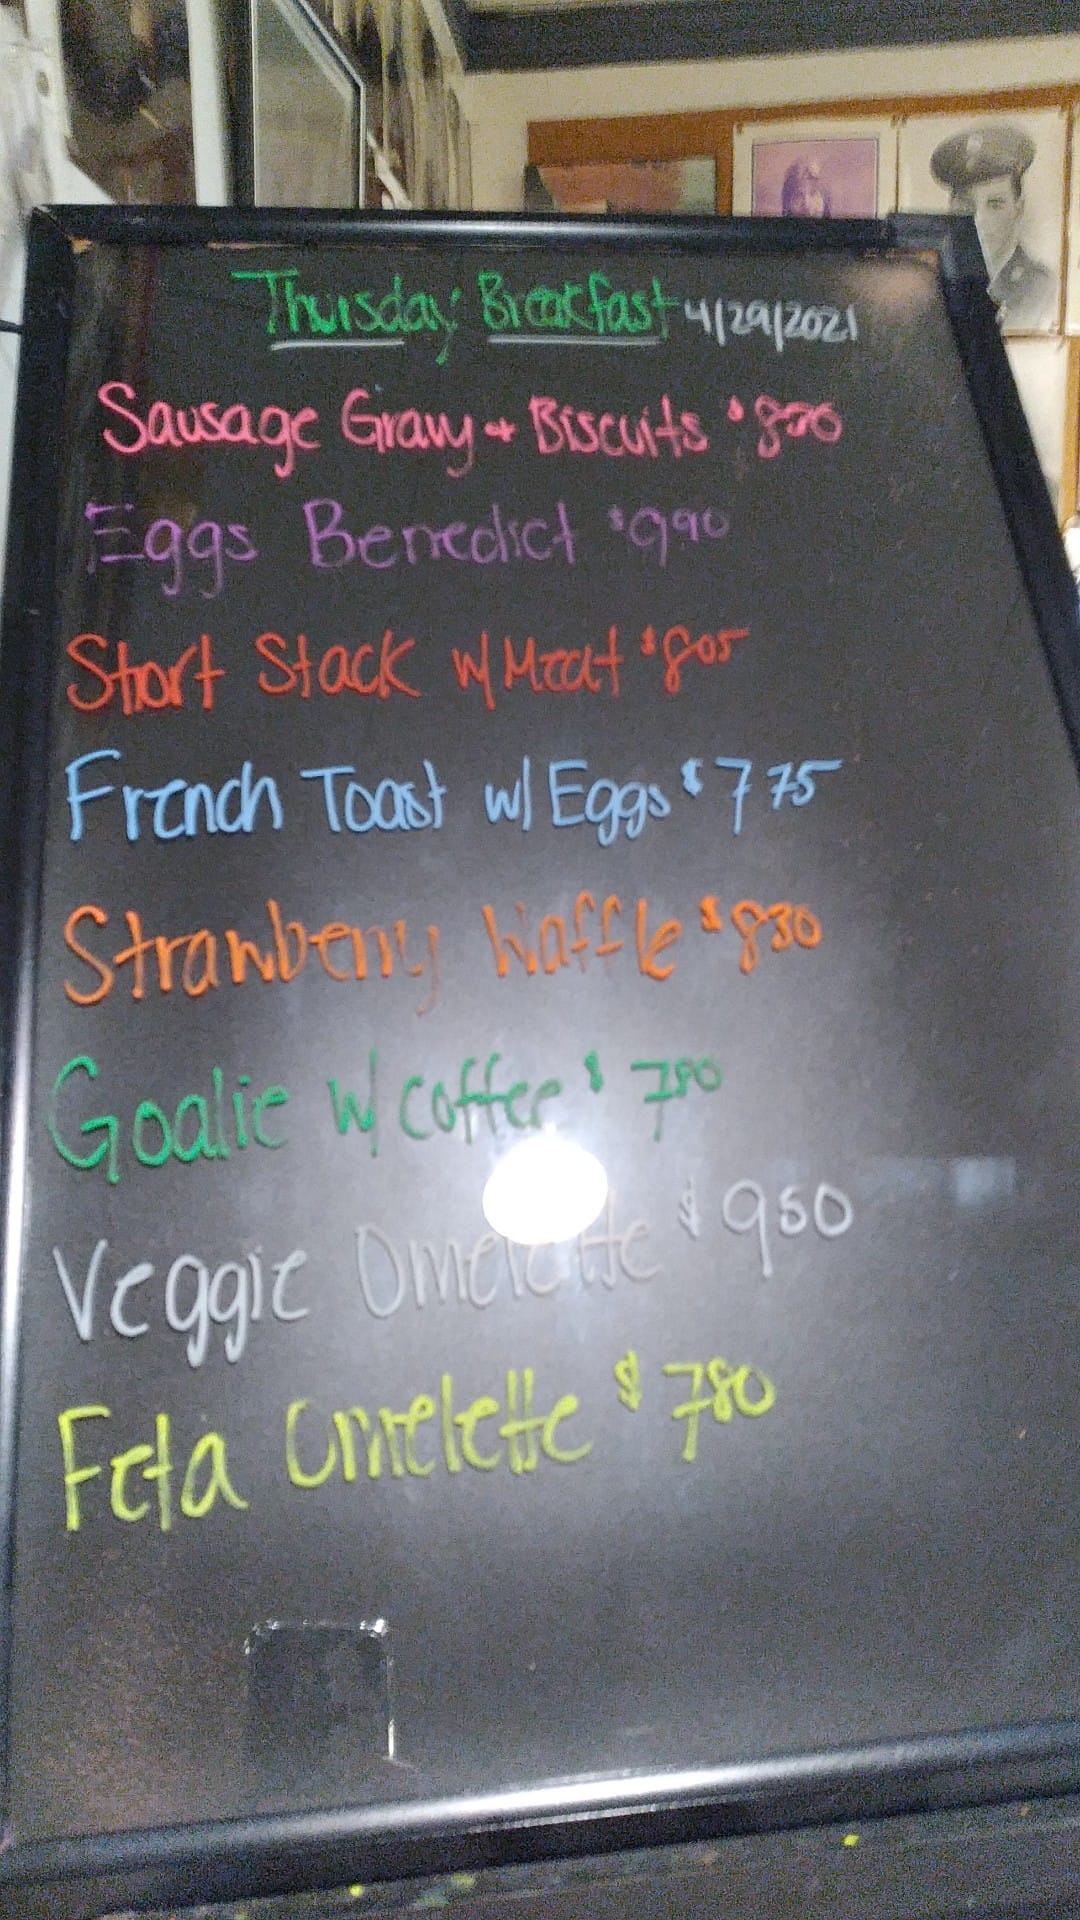 Thursday Breakfast 4/29/2021
Sausage Gravy + Biscuits $850
Eggs Benedict $990
Short Stack w/ Meat $805
French Toast w/ Eggs $775
Strawberry Waffle $830
Goalie w/ coffee $780
Veggie Omelette $950
Feta Omelette $780